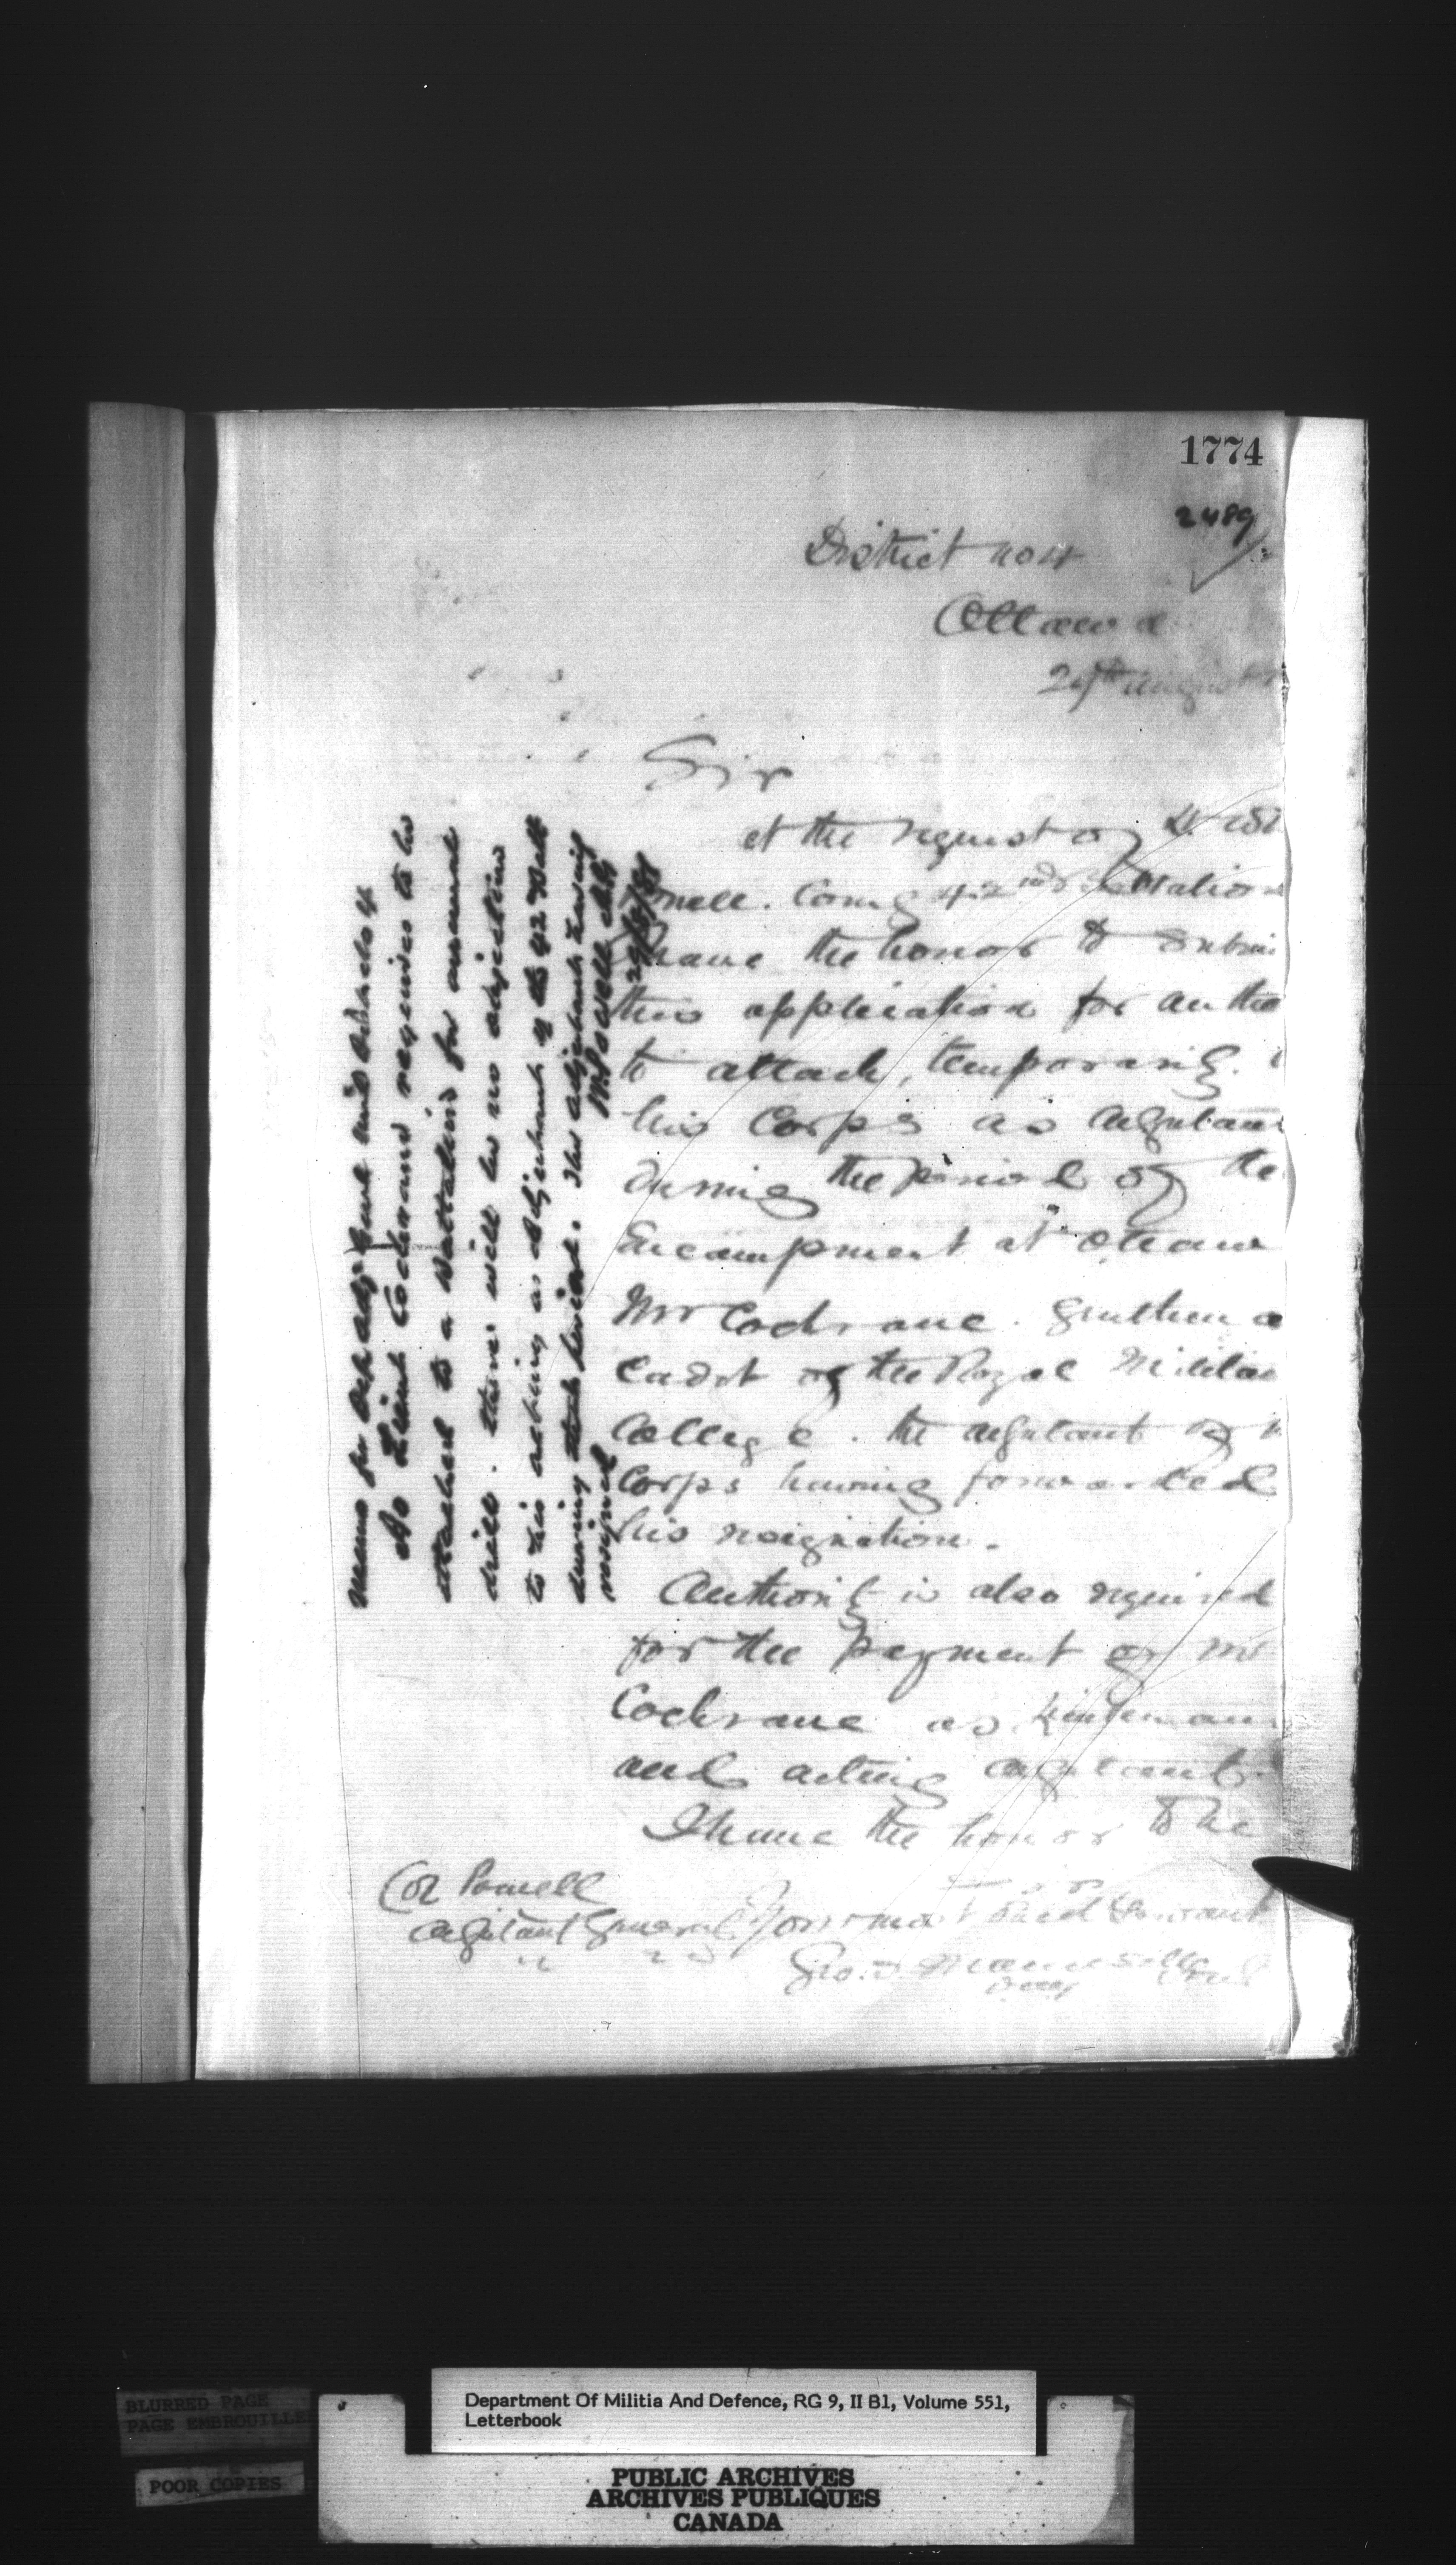 1774
2489
District no 4
Ottawa
29th August
Sir
at the request of Lt Col
Powell. Comg 42nd Battalion
I have the honor to submi
this application for autho
to attach, temporarily.
his Corps as Adjutant
during the period of the
Encampment at Ottawa
Mr Cochrane. Gentleman
Cadet of the Royal Militar
College. the adjutant of
Corps having forwarded
his resignation.
Authority is also required
for the payment of Mr
Cochrane as Lieutenan
and acting adjutant.
I have the honor to be
Sir
Your most obed Servant
Col Powell
Adjutant General
Memo for Dep Adjt Genl Mil District 4
As Lieut Cochrane requires to be
attached to a Battalion for annual
drill. there will be no objection
to his acting as Adjutant of the 42 Batt
during that period. The adjutant having
resigned
W. Powell
29/8/
Department Of Militia And Defence, RG 9, II B1, Volume 551,
Letterbook
BLURRED PAGE
PAGE EMBROUILLE
POOR COPIES
PUBLIC ARCHIVES
ARCHIVES PUBLIQUES
CANADA